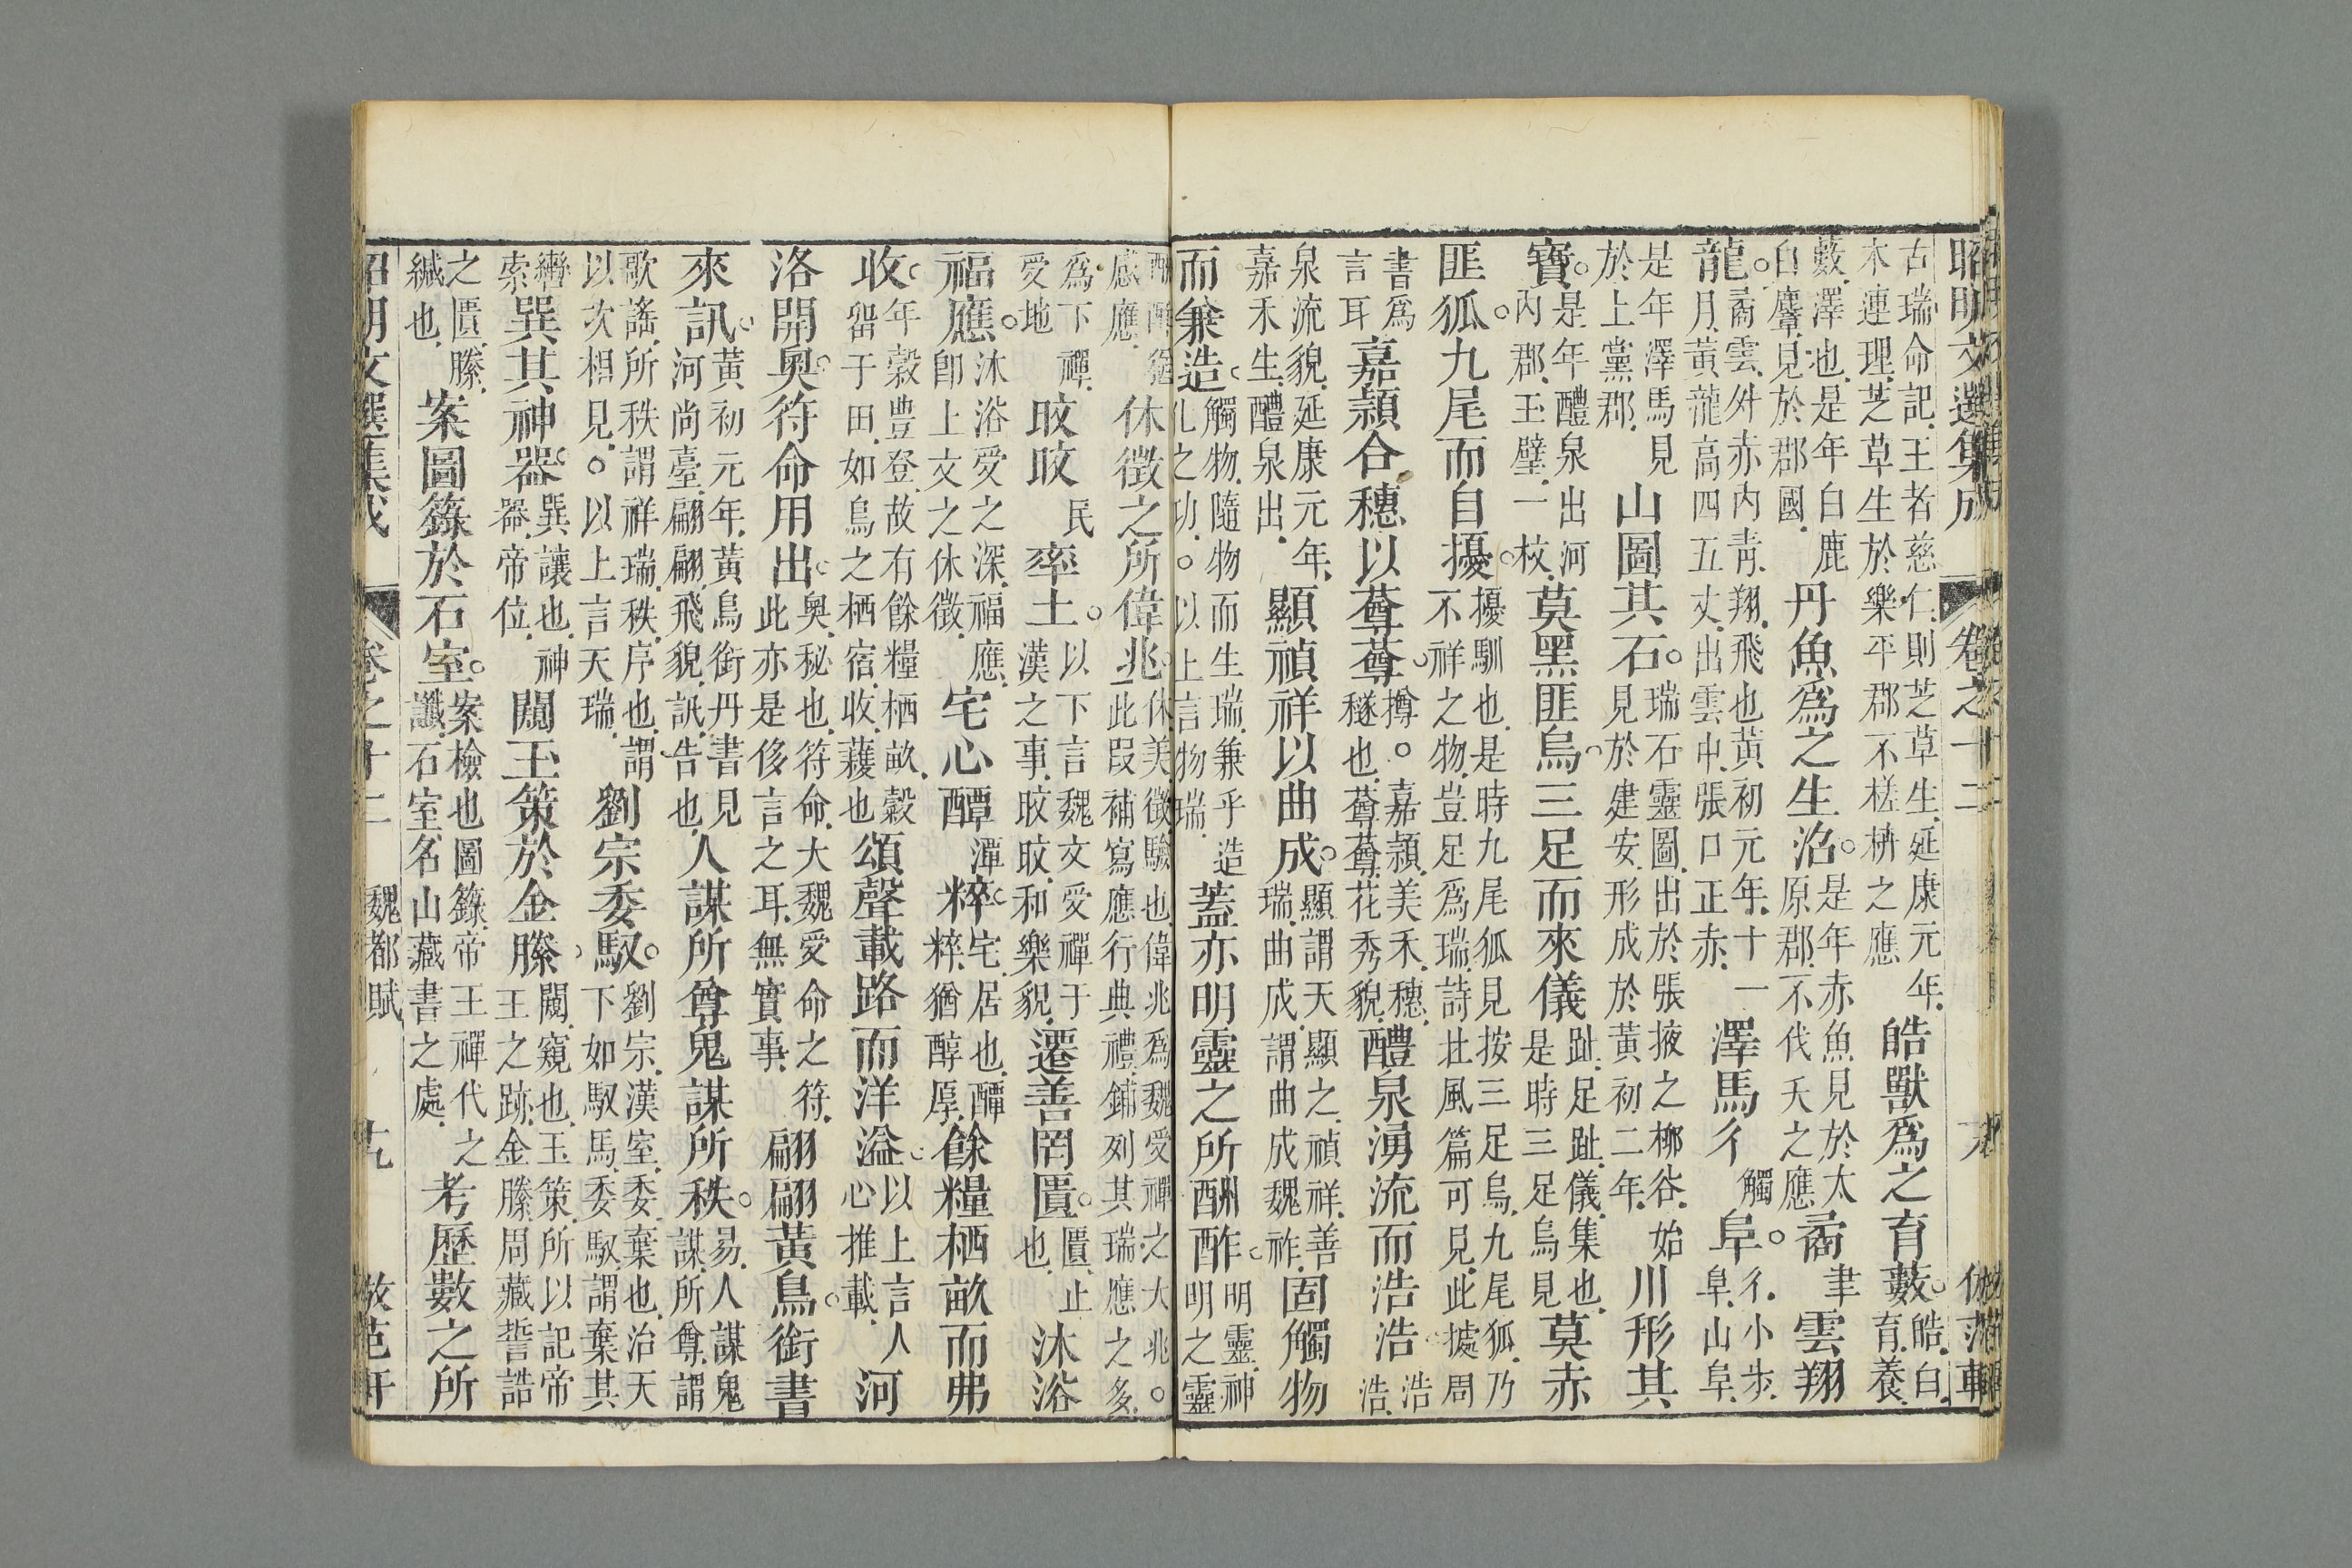 昭明文選集成 卷之十二 倣范軒
古瑞命記王者慈仁則芝草生延康元年木連理芝草生於樂平郡不槎枿之應皓獸為之育藪。皓白育養
藪澤也是年白鹿白麞見於郡國丹魚為之生沼。是年赤魚見於太原郡不伐夭之應矞聿雲翔
龍。矞雲外赤內青翔飛也黃初元年十一月黃龍高四五丈出雲中張口正赤澤馬亍觸阜。亍小步阜山阜
是年澤馬見於上黨郡山圖其石。瑞石靈圖出於張掖之柳谷始見於建安形成於黃初二年川形其
寶。是年醴泉出河內郡玉璧一枚莫黑匪烏。三足而來儀趾足趾儀集也是時三足烏見莫赤
匪狐。九尾而自擾。擾馴也是時九尾狐見按三足烏九尾狐乃不祥之物豈足為瑞詩北風篇可見此據周
書為言耳嘉頴合穗以蓴蓴。撙○嘉頴美禾穗穟也蓴蓴花秀貌醴泉湧流而浩浩。浩浩
泉流貌延康元年嘉禾生醴泉出顯禎祥以曲成。顯謂天顯之禎祥善瑞曲成謂曲成魏祚固觸物
而兼造。觸物隨物而生瑞兼乎造化之功○以上言物瑞蓋亦明靈之所酬酢。明靈神明之靈
酬酢猶感應休徵之所偉兆。休美徵驗也偉兆為魏受禪之大兆○此段補寫應行典禮鋪列其瑞應之多
為下禪愛地旼旼民率土。以下言魏文受禪于漢之事旼旼和樂貌遷善罔匱。匱止也沐浴
福應。沐浴愛之深福應卽上文之休徵宅心醰潭粹。宅居也醰粹猶醇厚餘糧栖畝而弗
收。年穀豐登故有餘糧栖畝穀畱于田如鳥之栖宿收蓛也頌聲載路而洋溢。以上言人心推載河
洛開奧。符命用出。奧秘也符命大魏受命之符此亦是侈言之耳無實事翩翩黃鳥。銜書
來訊。黃初元年黃鳥銜丹書見河尚臺翩翩飛貌訊告也人謀所尊鬼謀所秩。易人謀鬼謀所尊謂
歌謠所秩謂祥瑞秩序也謂以次相見○以上言天瑞劉宗委馭。劉宗漢室委棄也治天下如馭馬委馭謂棄其
轡索巽其神器。巽讓也神器帝位闚玉策於金縢。闚窺也玉策所以記帝王之跡金縢周藏誓誥
之匱縢緘也案圖籙於石室。案檢也圖籙帝王禪代之讖石室名山藏書之處考歷數之所
昭明文選集成 卷之十二 魏都賦 十九 倣范軒